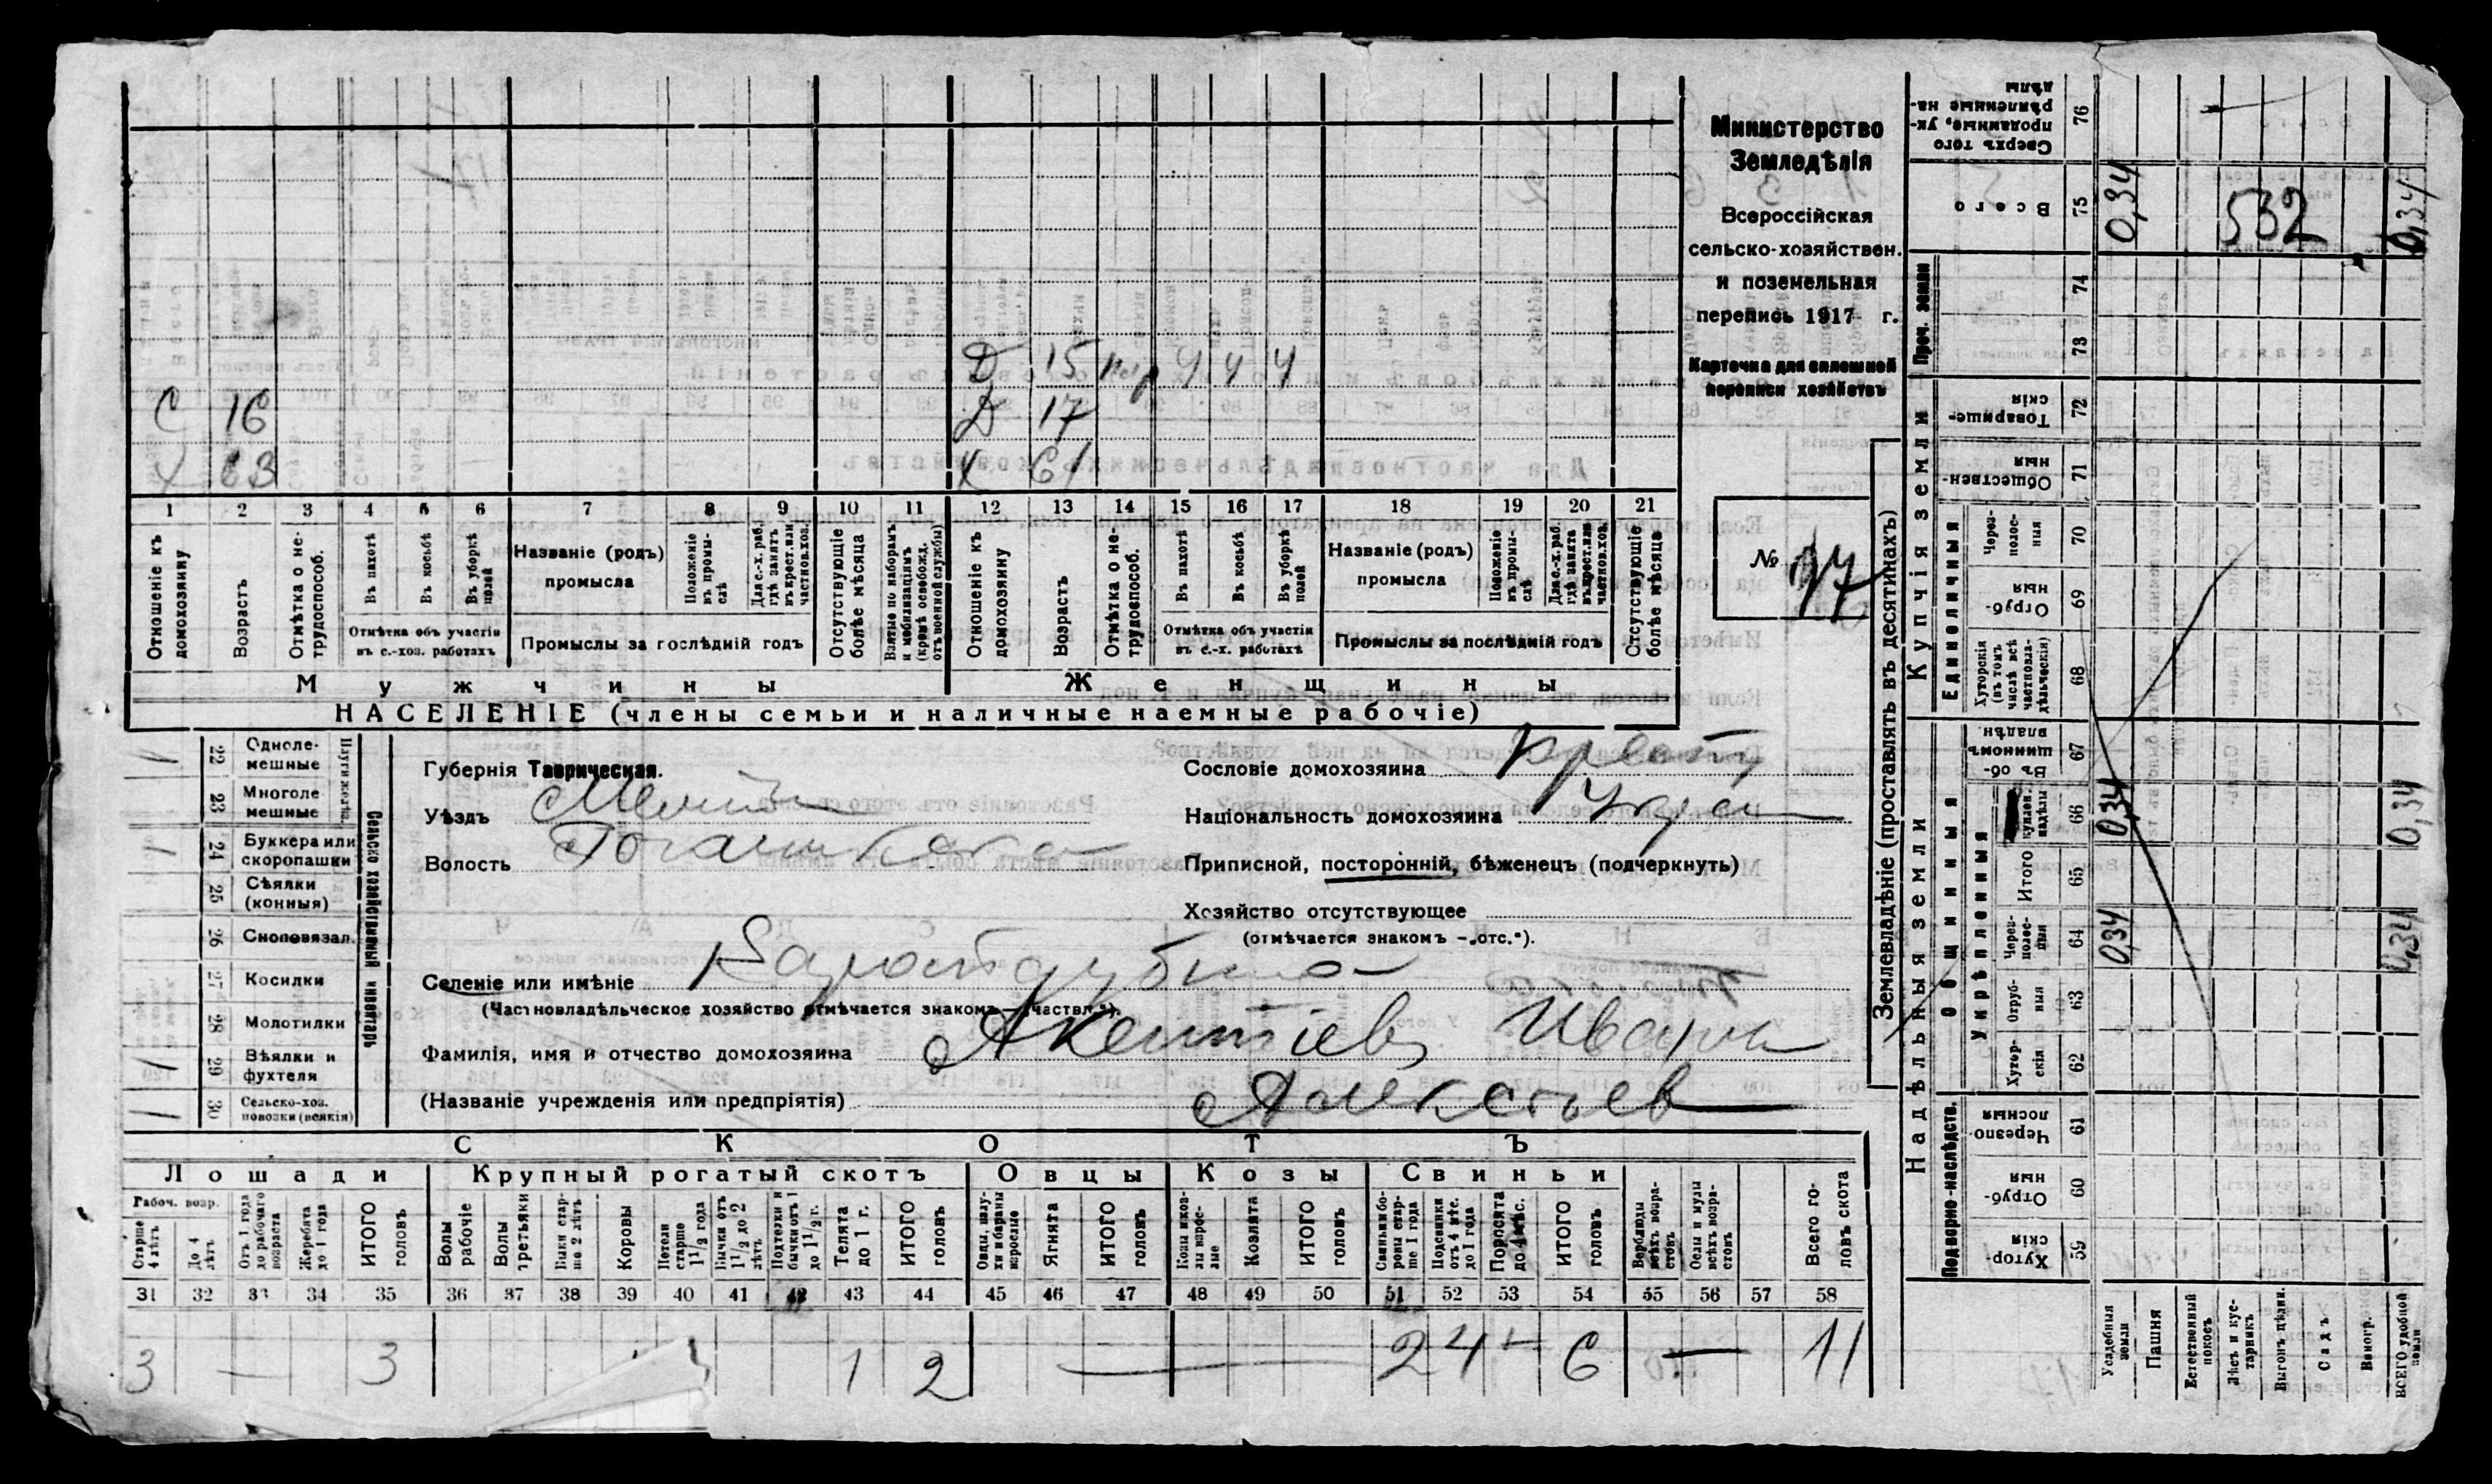 Министерство
Земледѣлія
Всероссійская
сельско-хозяйствен.
и поземельная
перепись 1917 г.
Карточка для сплошной
переписи хозяйствъ
№ 17
Д 15 4 4 4
С 16 Д 17
Х 63 Х 61
1 2 3 4 5 6 7 8 9 10 11 12 13 14 15 16 17 18 19 20 21
Отношеніе къ домохозяину
Возрастъ
Отмѣтка о не-трудоспособ.
Въ пахотѣ
Въ косьбѣ
Въ уборкѣ полей
Отмѣтка объ участіи въ с.-хоз. работахъ
Названіе (родъ) промысла
Положеніе въ промы-слѣ
Для с.-х. раб. гдѣ занятъ въ крест. или частнов. хоз.
Промыслы за послѣдній годъ
Отсутствующіе болѣе мѣсяца
Взятые по наборамъ и мобилизаціямъ (кромѣ освобожд. отъ военной службы)
Отношеніе къ домохозяину
Возрастъ
Отмѣтка о не-трудоспособ.
Въ пахотѣ
Въ косьбѣ
Въ уборкѣ полей
Отмѣтка объ участіи въ с.-х. работахъ
Названіе (родъ) промысла
Положеніе въ промы-слѣ
Для с.-х. раб. гдѣ занята въ крест. или частнов. хоз.
Промыслы за послѣдній годъ
Отсутствующіе болѣе мѣсяца
Мужчины Женщины
НАСЕЛЕНІЕ (члены семьи и наличные наемные рабочіе)
Сельско хозяйственный инвентарь
Плуги желѣз.
22 Одноле-мешные
23 Многоле мешные
24 Буккера или скоропашки
25 Сѣялки (конныя)
26 Сноповязал.
27 Косилки
28 Молотилки
29 Вѣялки и фухтеля
30 Сельско-хоз. повозки (всякія)
Губернія Таврическая.
Уѣздъ Мелит
Волость
Сословіе домохозяина
Національность домохозяина
Приписной, посторонній, бѣженецъ (подчеркнуть)
Хозяйство отсутствующее
(отмѣчается знакомъ — „отс.“).
Селеніе или имѣніе
(Частновладѣльческое хозяйство отмѣчается знакомъ — „частвл.“).
Фамилія, имя и отчество домохозяина Акентіевъ Иванъ
(Названіе учрежденія или предпріятія) Алексѣев
СКОТЪ
Лошади Крупный рогатый скотъ Овцы Козы Свиньи
Рабоч. возр.
Старше 4 лѣтъ
До 4 лѣтъ
Отъ 1 года до рабочаго возраста
Жеребята до 1 года
ИТОГО головъ
Волы рабочіе
Волы третьяки
Быки стар-ше 2 лѣтъ
Коровы
Нетели старше 1 1/2 года
Бычки отъ 1 1/2 до 2 лѣтъ
Подтелки и бычки отъ 1 до 1 1/2 г.
Телята до 1 г.
ИТОГО головъ
Овцы, валу-хи и бараны взрослые
Ягнята
ИТОГО головъ
Козы и коз-лы взрос-лые
Козлята
ИТОГО головъ
Свиньи и бо-ровы стар-ше 1 года
Подсвинки отъ 4 мѣс. до 1 года
Поросята до 4 мѣс.
ИТОГО головъ
Верблюды всѣхъ возра-стовъ
Ослы и мулы всѣхъ возра-стовъ
Всего го-ловъ скота
31 32 33 34 35 36 37 38 39 40 41 42 43 44 45 46 47 48 49 50 51 52 53 54 55 56 57 58
3 — 3 1 2 — 2 4 — 6 — 11
Землевладѣніе (проставлять въ десятинахъ)
Надѣльныя земли Купчія земли
Подворно-наслѣдств.
Общинныя
Укрѣпленныя
Единоличныя
Проч. земли
Сверхъ того проданные, ук-рѣпленные на-дѣлы 76
Всего 75 0,34 532 0,34
74
73
Товарище-скія 72
Обществен-ныя 71
Через-полос-ныя 70
Отруб-ныя 69
Хуторскія (въ томъ числѣ всѣ частновла-дѣльческія) 68
Въ об-щинномъ владѣн. 67
надѣлы 66 0,34 0,34
Итого 65
Через-полос-ныя 64 0,34 0,34
Отруб-ныя 63
Хутор-скія 62
Черезпо-лосныя 61
Отруб-ныя 60
Хутор-скія 59
Усадебныя земли
Пашня
Естественный покосъ
Лѣсъ и кус-тарникъ
Выгонъ цѣлин.
Садъ
Виногр.
ВСЕГО удобной земли